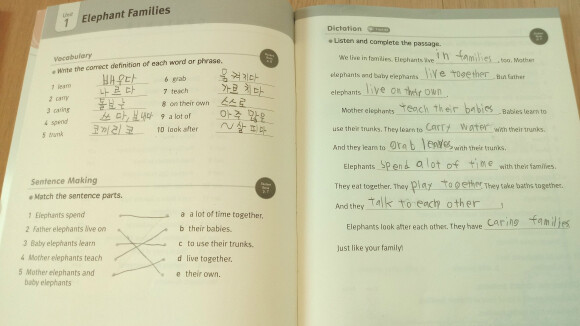 Unit
1
Elephant Families
Vocabulary
Write the correct definition of each word or phrase.
1 learn 배우다
2 carry 나르다
3 caring
4 spend 쓰다, 보내다
5 trunk 코끼리 코
6 grab 움켜지다
7 teach 가르치다
8 on their own 스스로
9 a lot of 아주 많은
10 look after ~살피다
Sentence Making
Match the sentence parts.
1 Elephants spend
2 Father elephants live on
3 Baby elephants learn
4 Mother elephants teach
5 Mother elephants and
baby elephants
a a lot of time together.
b their babies.
c to use their trunks.
d live together.
e their own.
Dictation
Listen and complete the passage.
We live in families. Elephants live in families, too. Mother
elephants and baby elephants live together. But father
elephants live on their own.
Mother elephants teach their babies. Babies learn to
use their trunks. They learn to carry water with their trunks.
And they learn to grab leaves, with their trunks.
Elephants spend a lot of time with their families.
They eat together. They play together. They take baths together.
And they talk to each other!
Elephants look after each other. They have caring families
Just like your family!